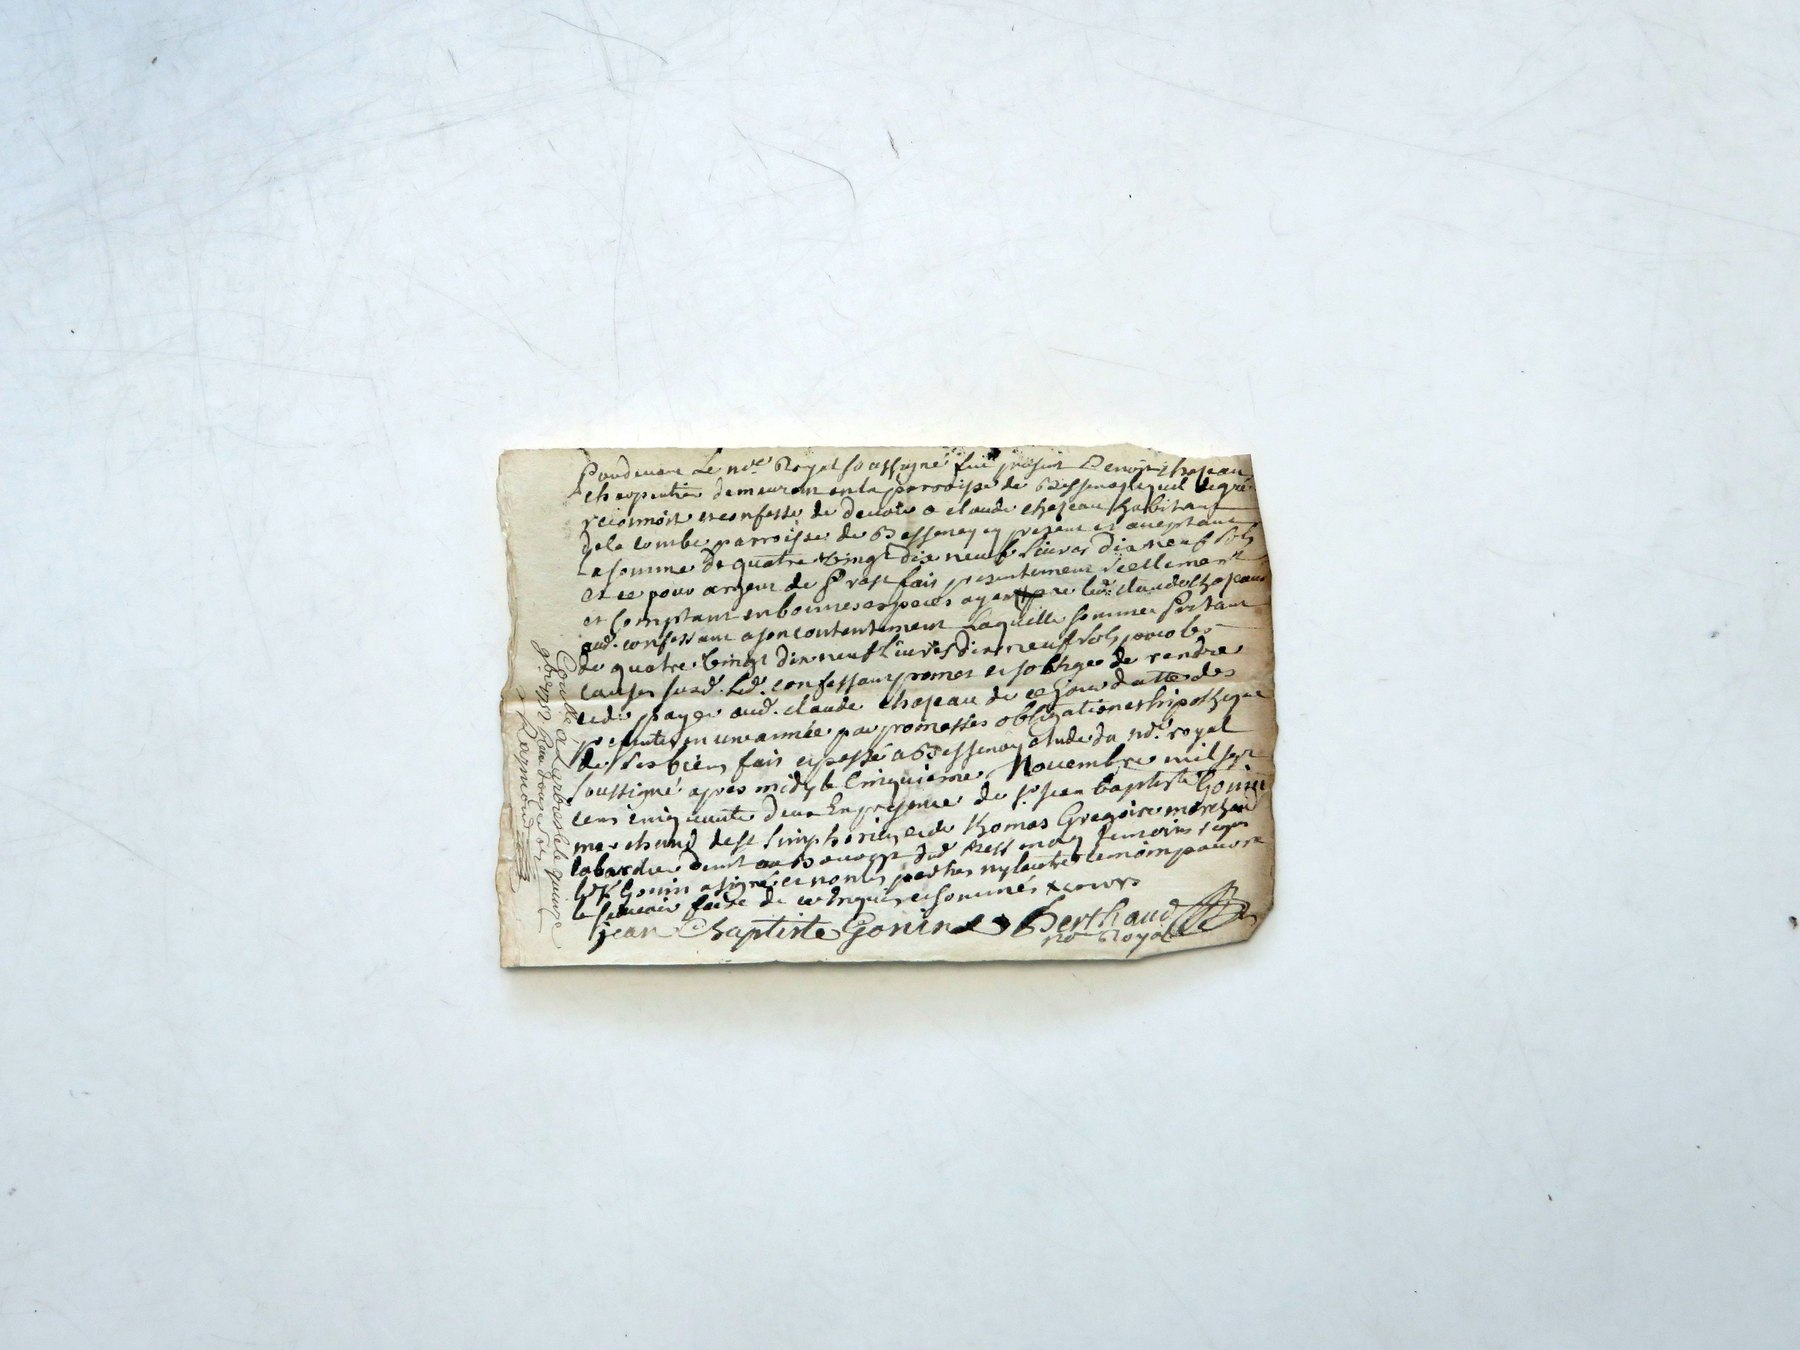 Pardevant Le no.re Royal soussigné fut présent Benoit chapeau
charpentier demeurant en la parroisse de Bessenay lequel de gré
reconnoit et confesse de devoir a claude chapeau habitant
de la combe parroisse de Bessenay cy présent et acceptant
La somme de quatre vingt dix neuf Livres dix neuf sols
et ce pour argent de Prest fait présentement réellement
et comptant en bonnes especes ayant par led. claude chapeau
aud. confessant a son contentement Laquelle somme Portant
de quatre vingt dix neuf Livres dix neuf sols pour les
causes susd. Led. confessant promet et s'oblige de rendre
et de payer aud. claude chapeau de ce jour datte des
présentes en une année par promesses obligation et hipotheque
de ses biens fait et passé a Bessenay etude du no.re royal
soussigné apres midy le cinquieme Novembre mil sept
cens cinquante deux En présence de sr. jean baptiste Gonin
marchand de st simphorien et de thomas Gregoire marchand
labardier dudit Bessenay temoins
led. Gonin a signé et non les parties ny lautre temoin pour ne
le scavoir faire de ce enquis et sommés
jean Baptiste Gonin Berthaud
no.re Royal
Con.lle a Larbresle le quinze
9bre 1752 Reçu douze sols
Raymond